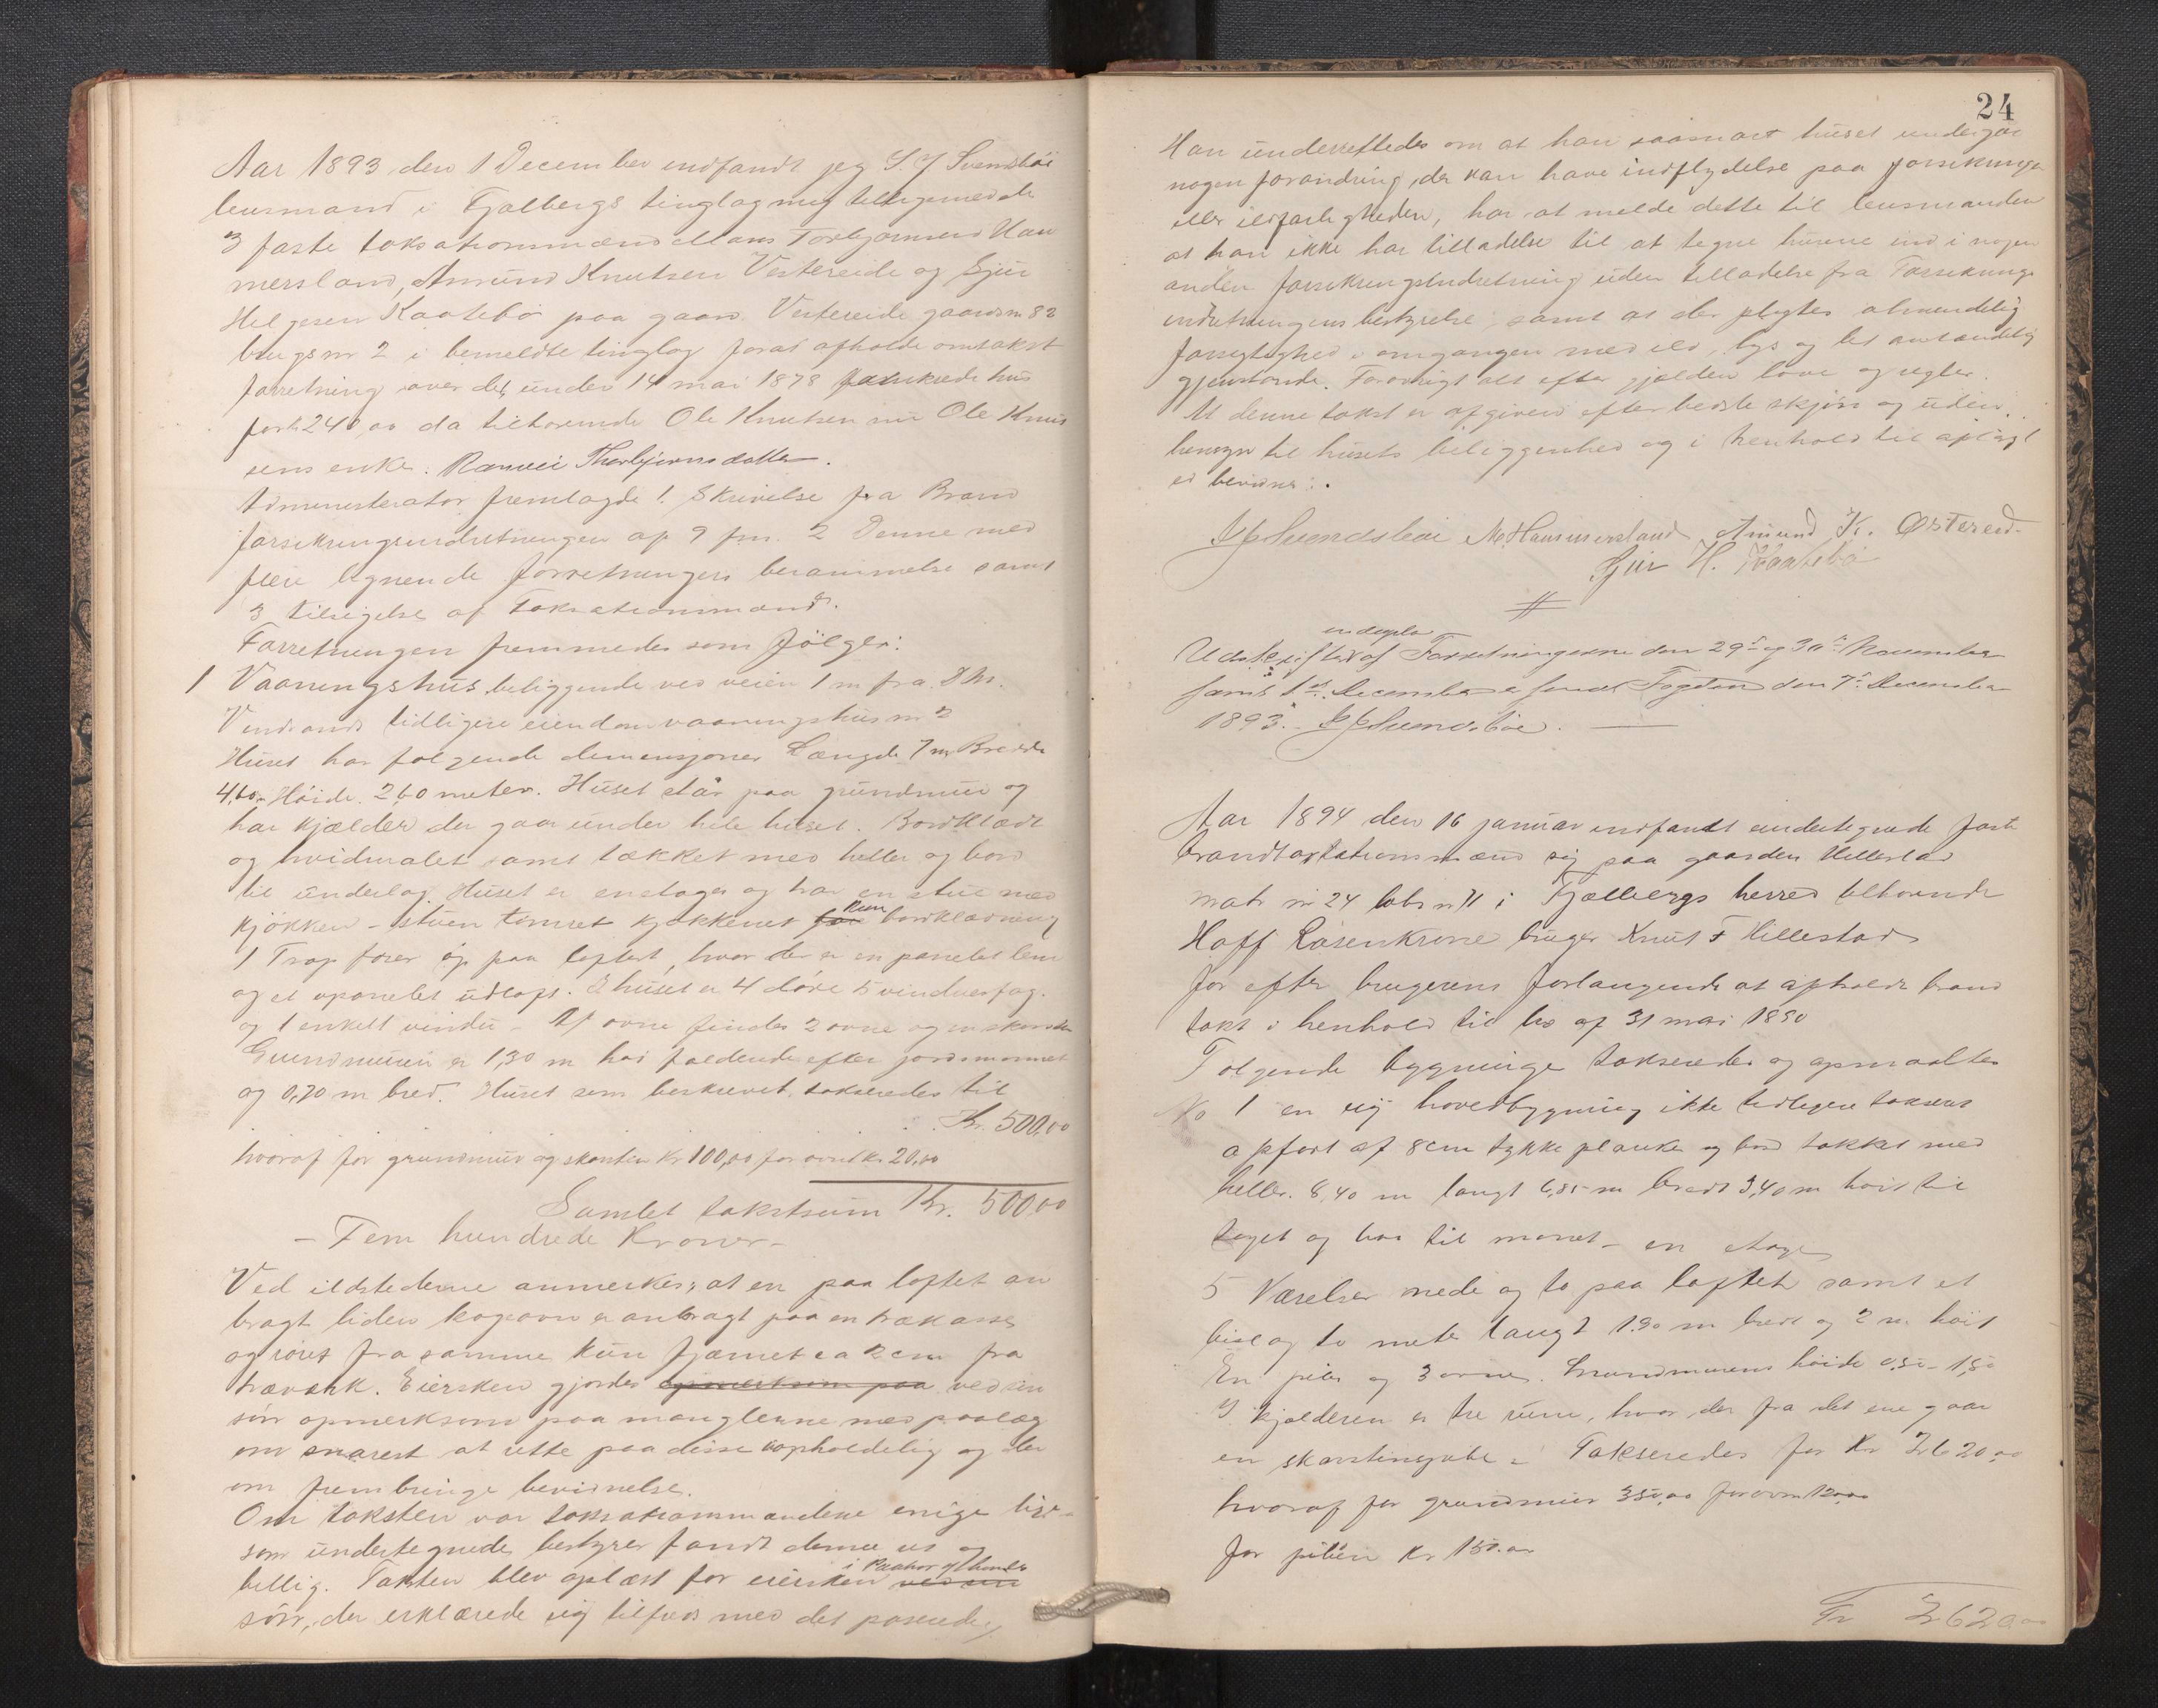 Aar 1893 den 1 December indfandt jeg S. J Svendsböe
lensmand i Fjælbergs tinglag mig tilligemed de
3 faste taksationsmænd Mons Torbjørnsen Ham
mersland, Amund Knutsen Vestereide og Sjur
Helgesen Kaatebö paa gaard. Vestereide gaardsnr 82
brugsnr 2 i bemeldte tinglag forat afholde omtakst
forretning over det under 14 mai 1878 forsikrede hus
for kr 240,00 da tilhørende Ole Knutsen nu Ole Knut
sens enke. Rannvei Thorbjørnsdatter.
Administrator fremlagde 1. Skrivelse fra Brand
forsikringsindretningen af 9 fm. 2 Denne med
flere lignende forretningers berammelse samt
3 tilsigelse af Taksationsmænd.
Forretningen fremmedes som fölger:
1 Vaaningshus beliggende ved veien 1 m fra
tidligere eiendom vaaningshus nr 2
Huset har følgende dimensjoner Længde 7 m Bredde
4,60. Høide. 2,60 meter. Huset står paa grundmur og
har kjælder der gaar under hele huset. Bordklædt
og hvidmalet samt tækket med heller og bord
til underlag. Huset er enetages og har en stue med
kjøkken - stuen tømret kjøkkenet kun bordklædning
1 Trap fører op paa loftet, hvor der er en panelet lem
og et upanelet udloft. I huset er 4 döre 5 vinduesfag.
og 1 enkelt vindu - Af ovne findes 2 ovne og en skorsten
Grundmuren er 1,30 m høi faldende efter jordsmonnet
og 0,70 m bred. Huset som beskrevet, takseredes til
Kr. 500,00
hvoraf for grundmur og skorsten kr 100,00 for ovne kr. 20,00
Samlet takstsum Kr. 500,00
- Fem hundrede Kroner -
Ved ildstederne anmerkes; at en paa loftet an
bragt liden kogeovn er anbragt paa en trækasse
og röret fra samme kun fjærnet ca 2 cm fra
træværk. Eiersken gjordes opmerksom paa ved sin
sön opmerksom paa manglerne med paalæg
om snarest at rette paa disse uopholdelig og der
om frembringe bevidnelse.
Om taksten var taksationsmændene enige lige-
som undertegnede bestyrer fandt denne ret og
billig. Taksten blev oplæst for eiersken i Paahør af hendes ved sin
sön, der erklærede sig tilfreds med det passerede,
24
Han underrettedes om at han saasnart huset undergaar
nogen forandring, der kan have indflydelse paa forsikringen
eller ildfarligheden, har at melde dette til lensmanden
at han ikke har tilladelse til at tegne husene ind i nogen
anden forsikringsindretning uden tilladelse fra Forsikrings
indretningens bestyrelse, samt at der plegtes almindelig
forsigtighed i omgangen med ild, lys og let antændelig
gjenstande. Forøvrigt alt efter gjældende love og regler.
At denne takst er afgiven efter bedste skjøn og uden
hensyn til husets beliggenhed og i henhold til aflagt
ed bevidnes.
S J Svendsböe M. T. Hammersland Amund K. Østereid.
Sjur H. Kaatebö
#
Udskrifter af Forretningerne den 29de og 30te November
samt 1ste December sendt Fogden den 7de December
1893. S J Svendsböe.
Aar 1894 den 16 januar indfandt undertegnede faste
brandtaxtationsmænd sig paa gaarden Hillestad
matr nr 24 løbe nr 11 i Fjælbergs herred tilhørende
Hoff Rosenkrone bruger Knut F Hillestad
for efter brugerens forlangende at afholde brand
takst i henhold til lov af 31 mai 1890
Følgende bygninge takseredes og opmaaltes
No 1 en ny hovedbygning ikke tidligere takseret
opført af 8 cm tykke planke og bord tækket med
heller. 8,40 m langt 6,85 m bredt 3,40 m høit til
taget og til mønet - en etage
5 Værelser nede og to paa loftet samt et
bislag to meter langt 1.90 m bredt og 2 m höit
En pibe og 3 ovne. Grundmurens höide 0,50 - 1,50
I kjælderen er tre rum, hvor der fra det ene gaar
en skorstenspibe - Takseredes for Kr 2620,00
hvoraf for grundmur 350,00 for ovne 120,00
for piben Kr 150.00
Tr 2620,00